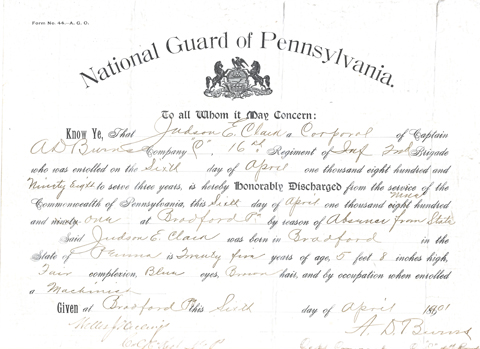 Form No. 44.—A. G. O.
National Guard of Pennsylvania.
To all Whom it May Concern:
Know Ye, That Judson E. Clark a Corporal of Captain
A D Burns Company "C", 16th Regiment of Inf 2nd Brigade
who was enrolled on the Sixth day of April one thousand eight hundred and
Ninety Eight to serve three years, is hereby Honorably Discharged from the service of the
Commonwealth of Pennsylvania, this Sixth day of April one thousand eight hundred
and ninety one at Bradford Pa by reason of Absence from State
Said Judson E. Clark was born in Bradford in the
State of Penna is Twenty five years of age, 5 feet 8 inches high,
Fair complexion, Blue eyes, Brown hair, and by occupation when enrolled
a Machinist
Given at Bradford Pa this Sixth day of April 1901
A. D. Burns